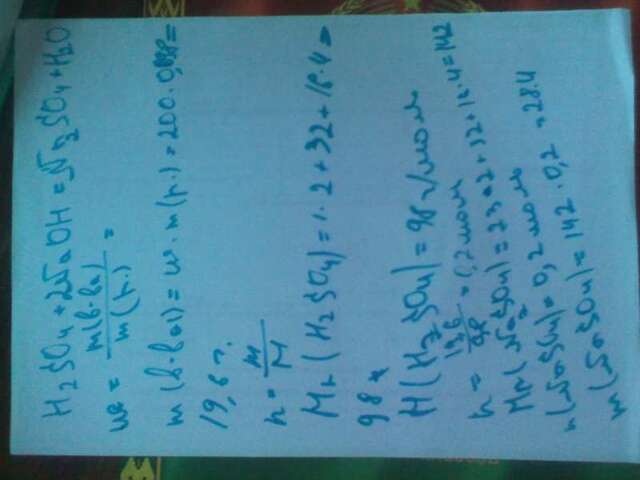 H2SO4 + 2NaOH = Na2SO4 + H2O
w = m(в-ва) / m(р.) =
m(в-ва) = w · m(р.) = 200 · 0,098 =
19,6 г.
n = m / M
Mr(H2SO4) = 1·2 + 32 + 16·4 =
98
M(H2SO4) = 98 г/моль
n = 19,6 / 98 = 0,2 моль
Mr(Na2SO4) = 23·2 + 32 + 16·4 = 142
n(NaSO4) = 0,2 моль
m(NaSO4) = 142 · 0,2 = 28.4